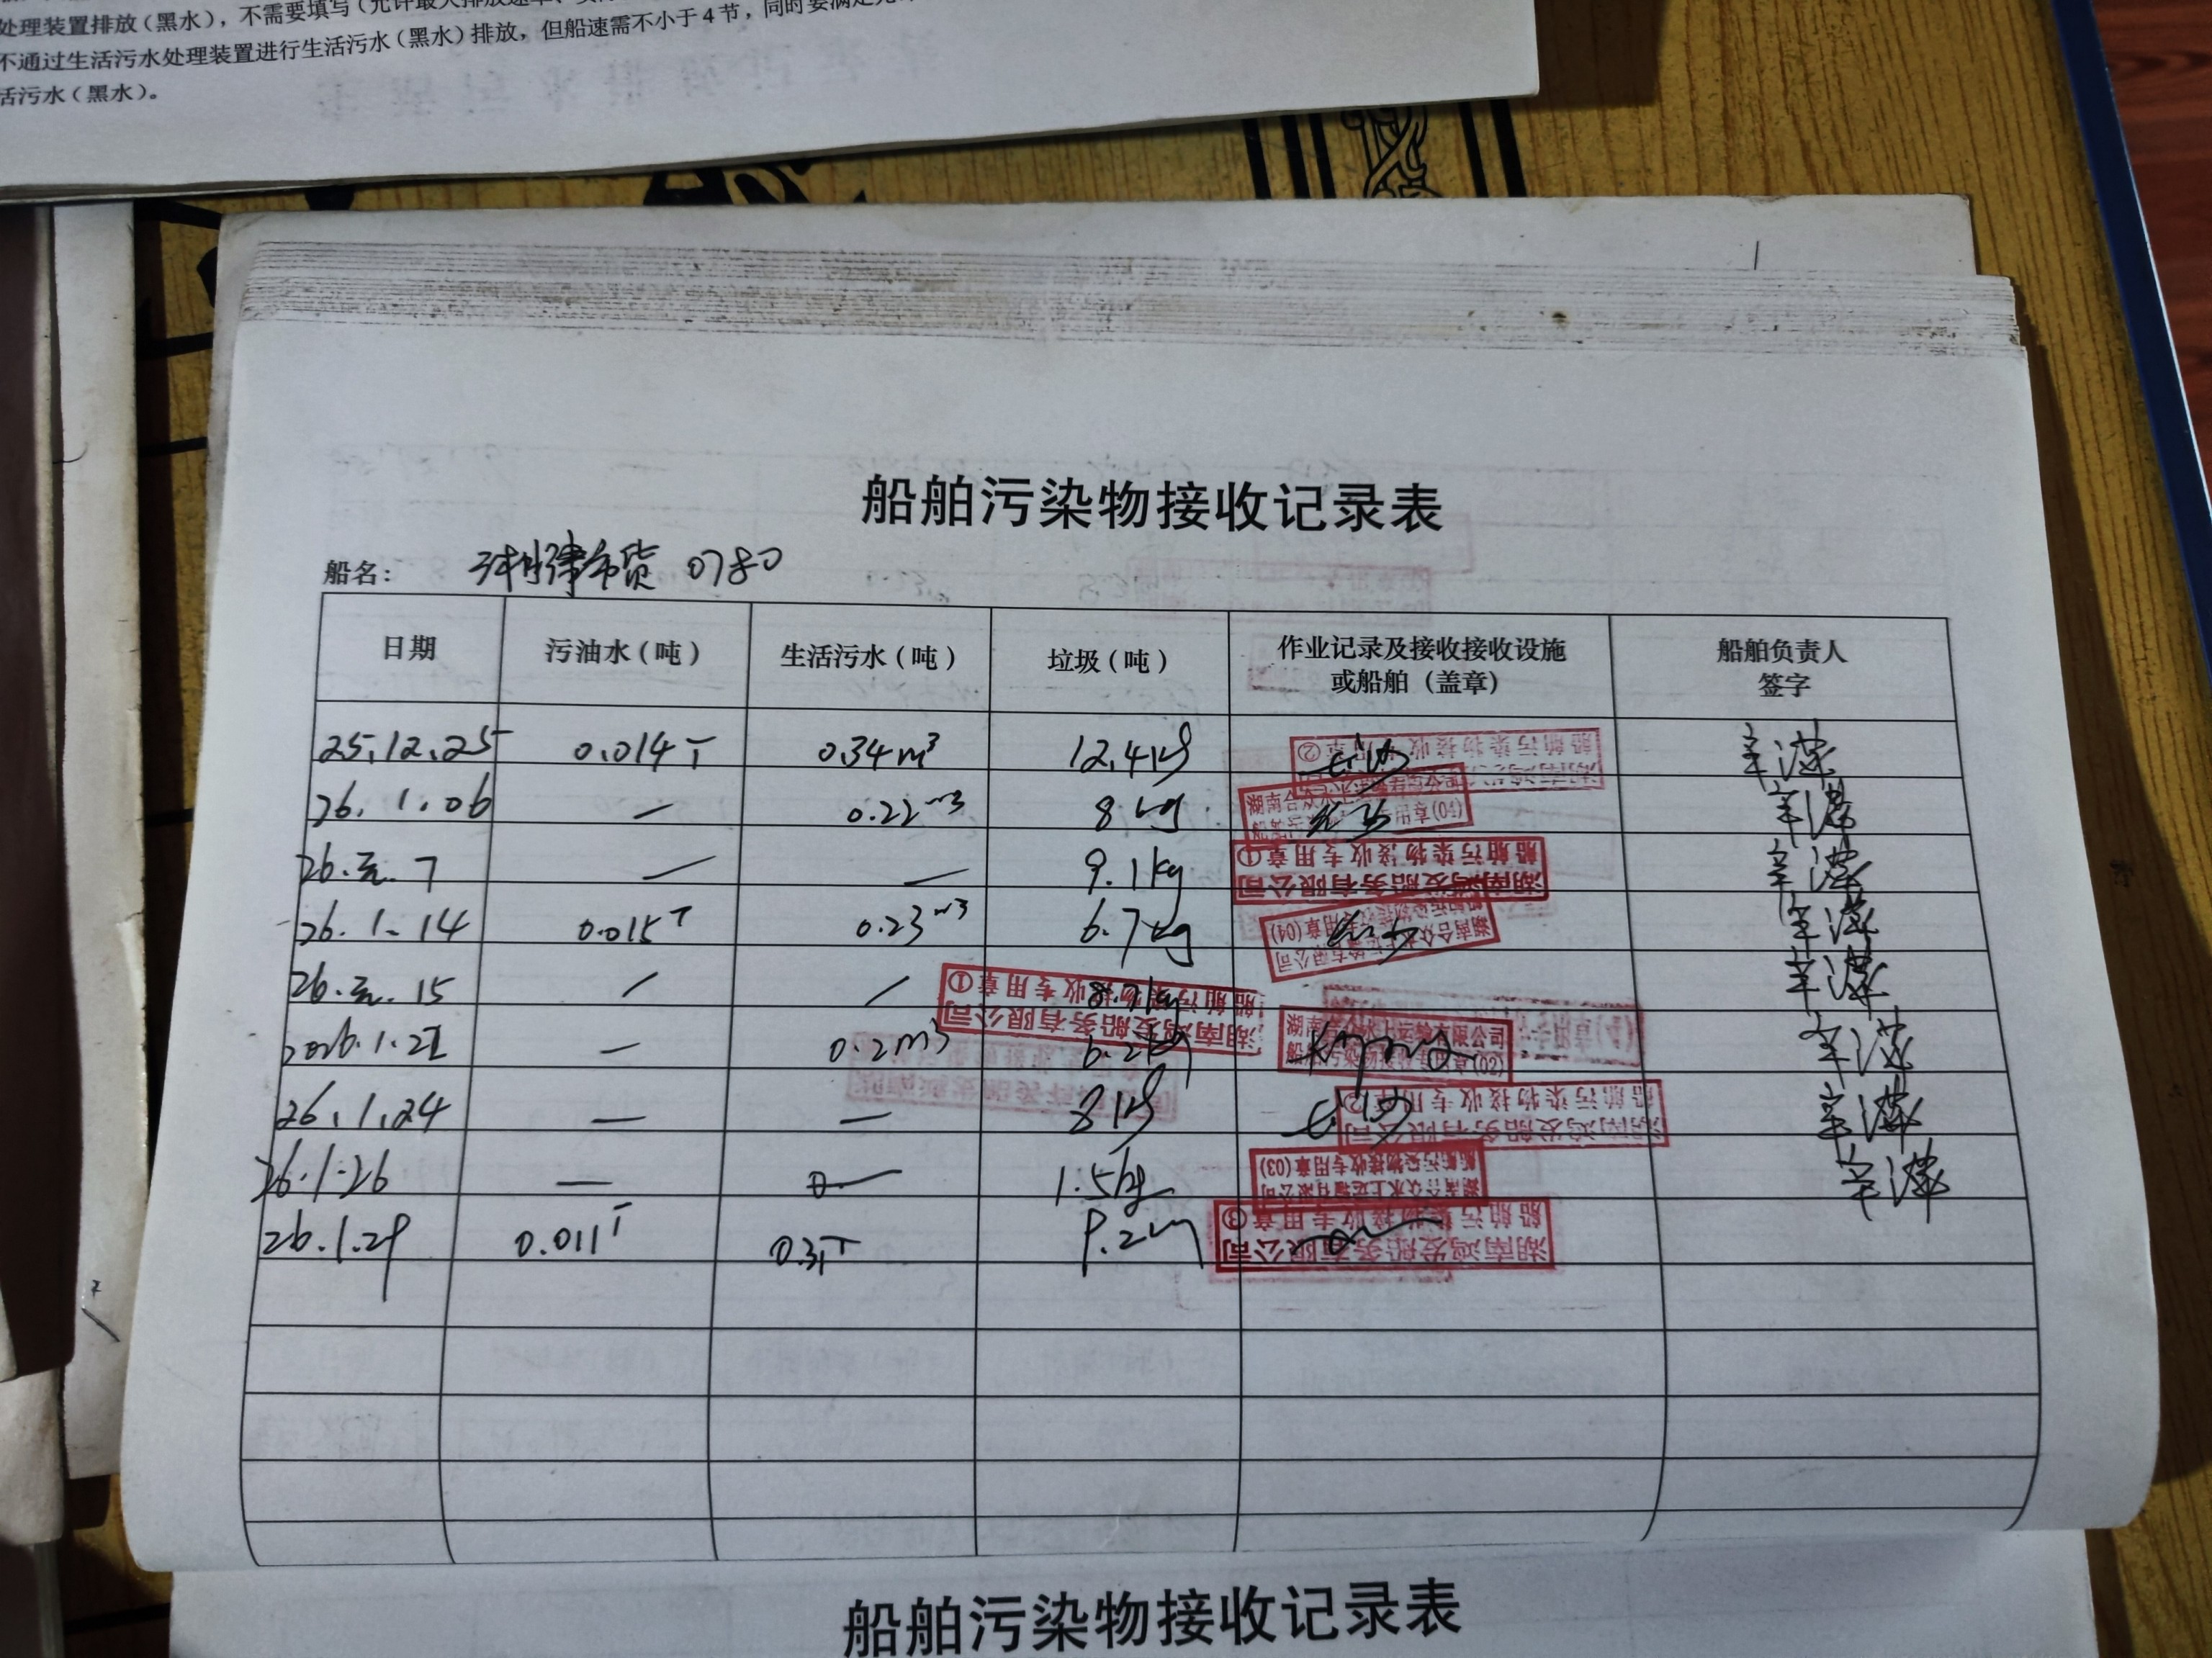 处理装置排放（黑水），不需要填写
不通过生活污水处理装置进行生活污水（黑水）排放，但船速需不小于4节，同时要满足
活污水（黑水）。
船舶污染物接收记录表
船名： 津市货 0780
日期 污油水（吨） 生活污水（吨） 垃圾（吨） 作业记录及接收接收设施或船舶（盖章） 船舶负责人签字
25.12.25 0.014T 0.34m³ 12.4kg 船舶污染物接收专用章②
26.1.06 — 0.22m³ 8kg
26.元.7 — — 9.1kg 湖南鸿发船务有限公司 船舶污染物接收专用章①
26.1.14 0.015T 0.23m³ 6.7kg 湖南合众水上运输有限公司 专用章(04)
26.元.15 / / 湖南鸿发船务有限公司 船舶污染物接收专用章①
2026.1.21 — 0.2m³ 6.2kg 湖南合众水上运输有限公司 船舶污染物接收专用章(02)
26.1.24 — — 8kg 湖南鸿发船务有限公司 船舶污染物接收专用章②
26.1.26 — — 1.5kg 湖南合众水上运输有限公司 船舶污染物接收专用章(03)
26.1.29 0.011T 0.3T 9.2kg 湖南鸿发船务有限公司 船舶污染物接收专用章③
船舶污染物接收记录表